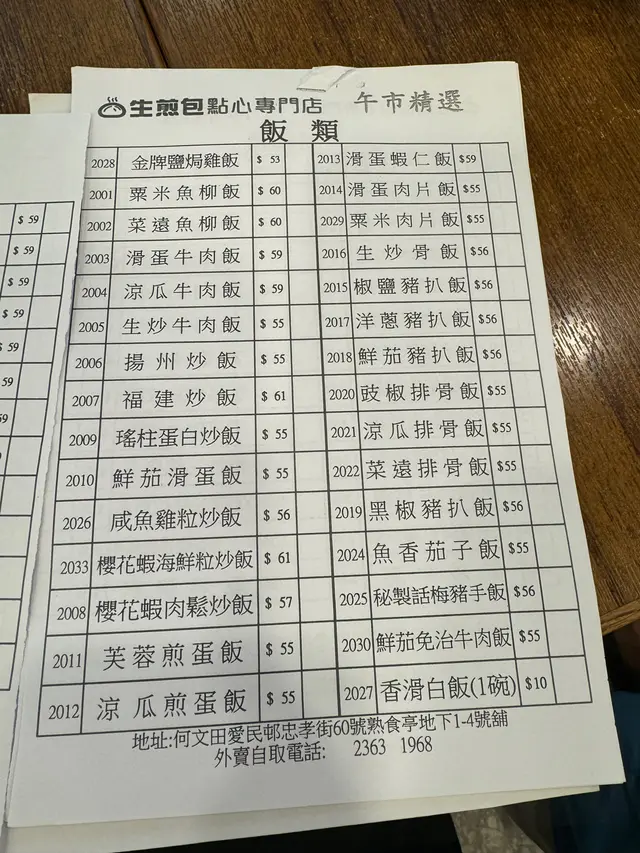 生煎包點心專門店 午市精選
飯 類
2028 金牌鹽焗雞飯 $ 53 2013 滑蛋蝦仁飯 $59
2001 粟米魚柳飯 $ 60 2014 滑蛋肉片飯 $55
2002 菜遠魚柳飯 $ 60 2029 粟米肉片飯 $55
2003 滑蛋牛肉飯 $ 59 2016 生炒骨飯 $56
2004 涼瓜牛肉飯 $ 59 2015 椒鹽豬扒飯 $56
2005 生炒牛肉飯 $ 55 2017 洋蔥豬扒飯 $56
2006 揚州炒飯 $ 55 2018 鮮茄豬扒飯 $56
2007 福建炒飯 $ 61 2020 豉椒排骨飯 $55
2009 瑤柱蛋白炒飯 $ 55 2021 涼瓜排骨飯 $55
2010 鮮茄滑蛋飯 $ 55 2022 菜遠排骨飯 $55
2026 咸魚雞粒炒飯 $ 56 2019 黑椒豬扒飯 $56
2033 櫻花蝦海鮮粒炒飯 $ 61 2024 魚香茄子飯 $55
2008 櫻花蝦肉鬆炒飯 $ 57 2025 秘製話梅豬手飯 $56
2011 芙蓉煎蛋飯 $ 55 2030 鮮茄免治牛肉飯 $55
2012 涼瓜煎蛋飯 $ 55 2027 香滑白飯(1碗) $10
地址:何文田愛民邨忠孝街60號熟食亭地下1-4號舖
外賣自取電話: 2363 1968
$ 59
$ 59
$ 59
$ 59
$ 59
59
59